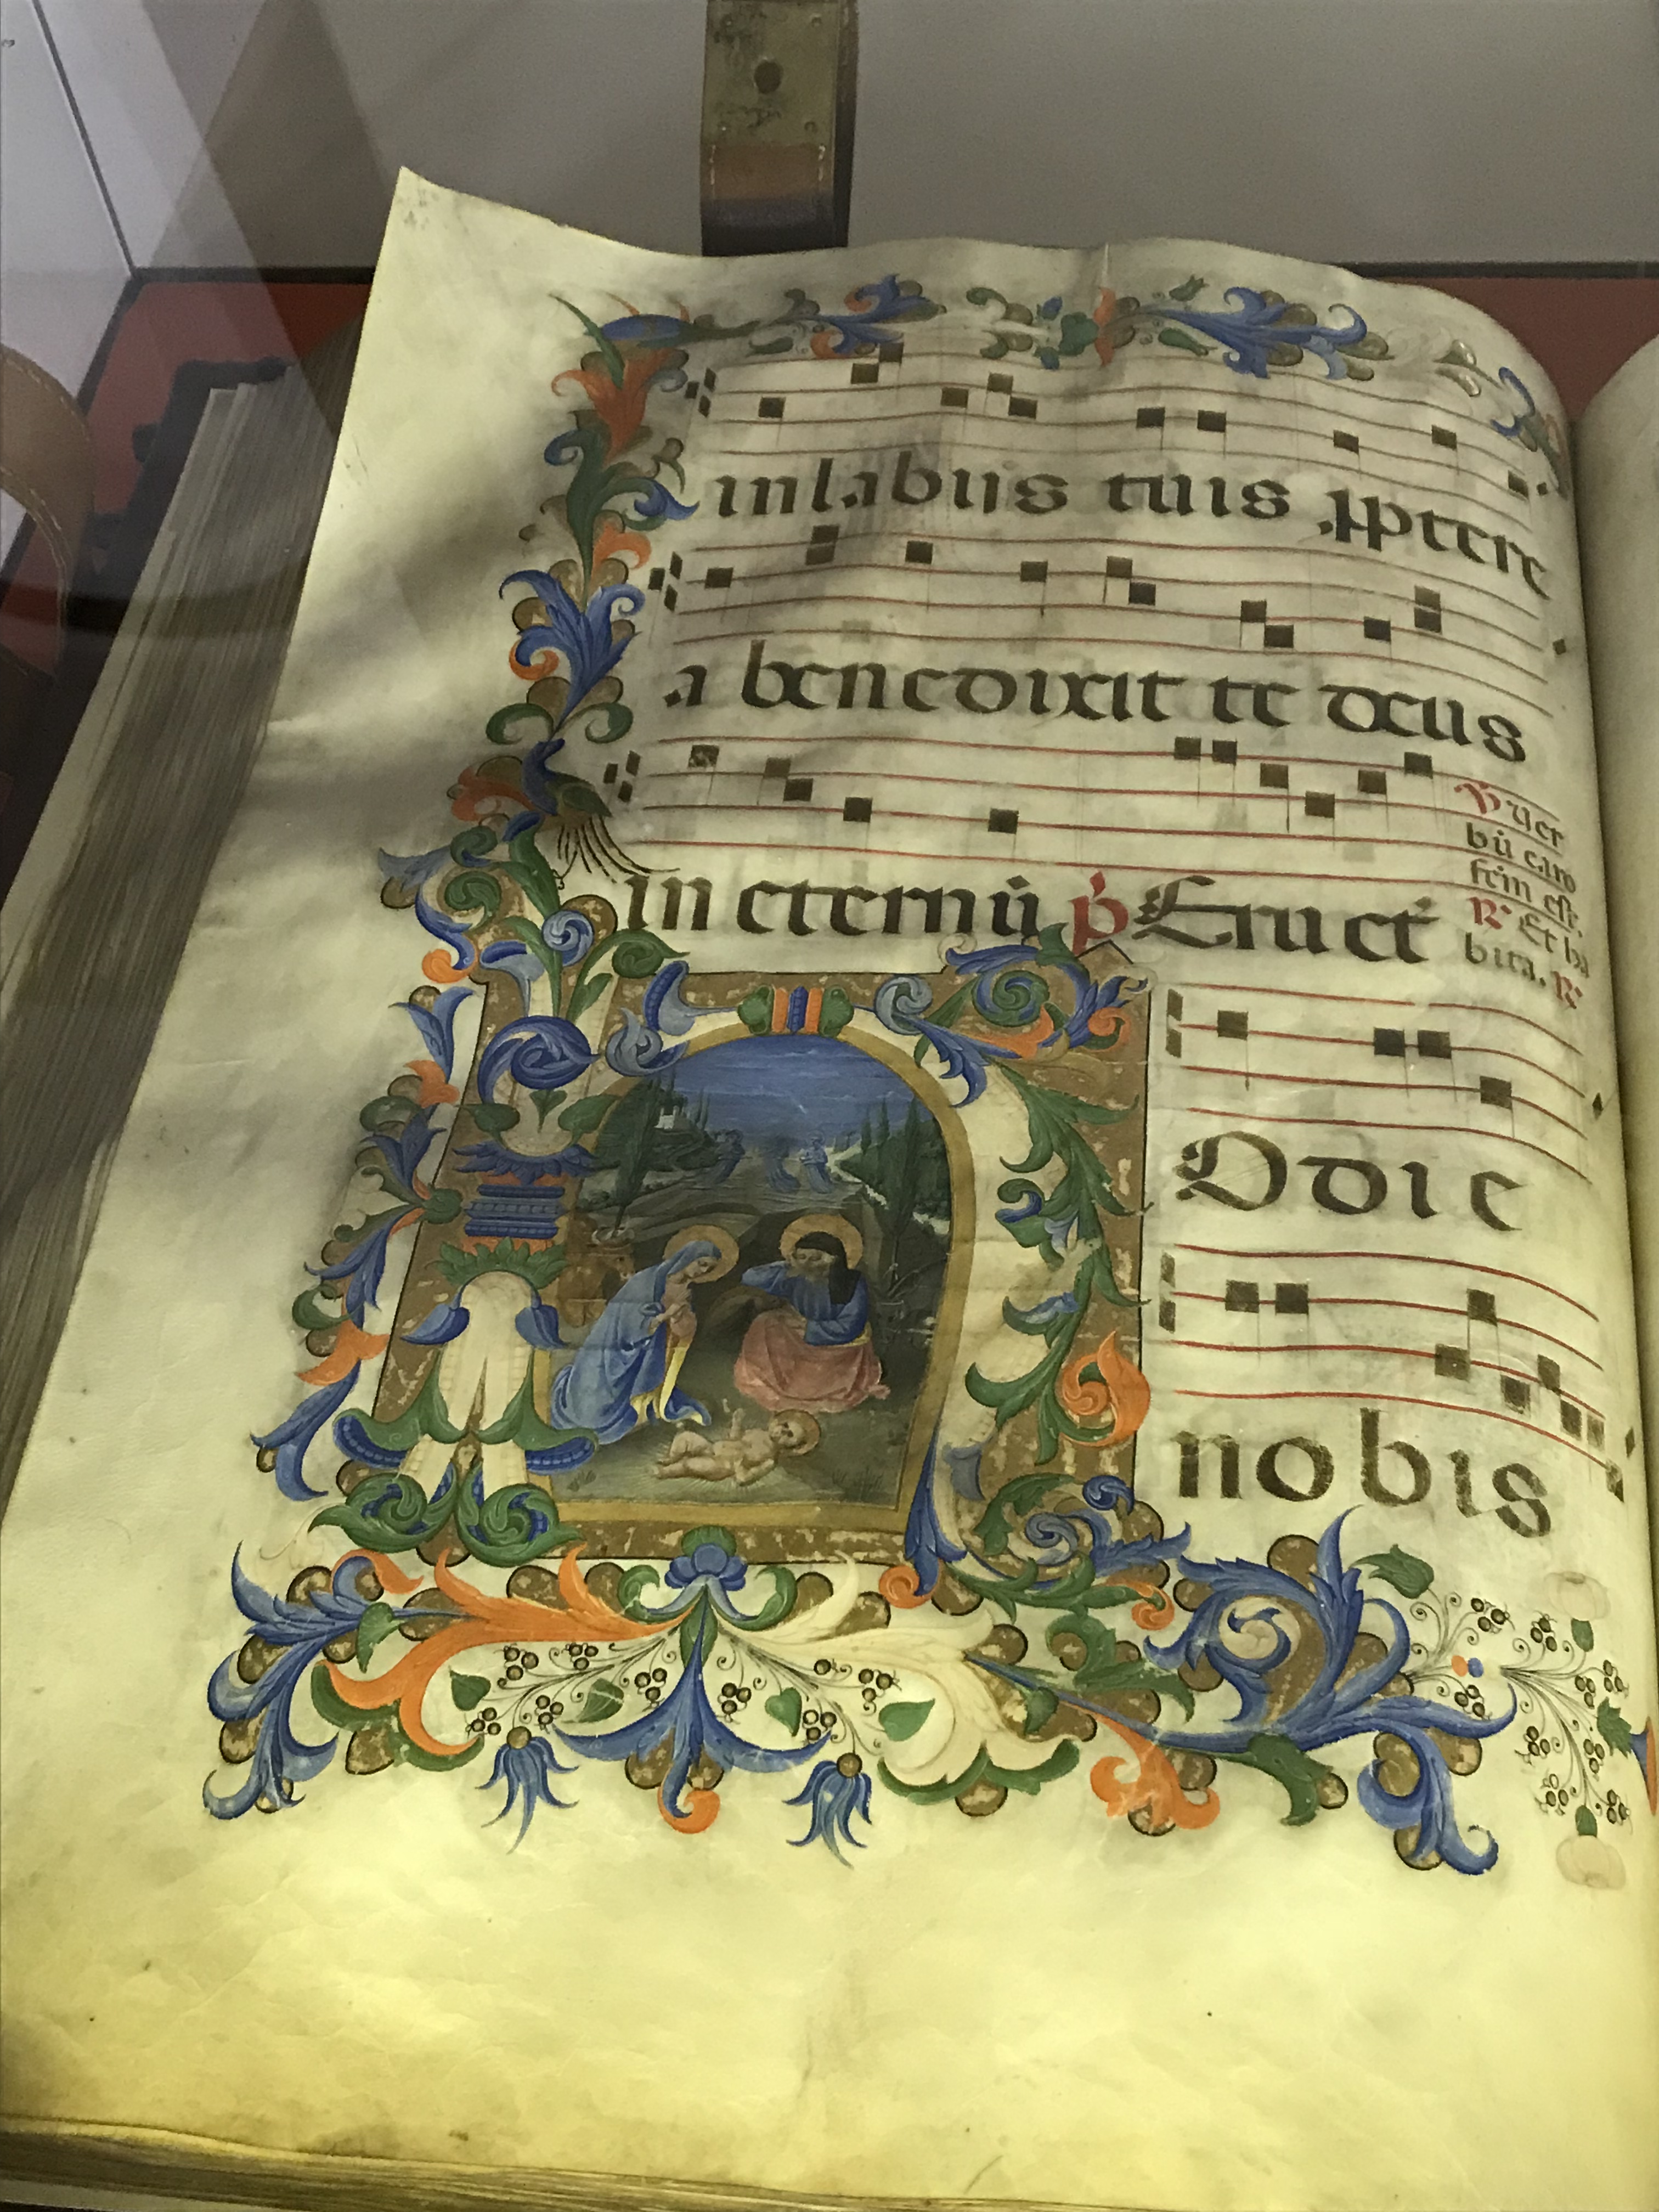 in labiis tuis pptere
a benedixit te deus
in eternū p̄ Eruct̄
V Uer
bū caro
fc̄m est.
R Et ha
bita. R
Odie
nobis